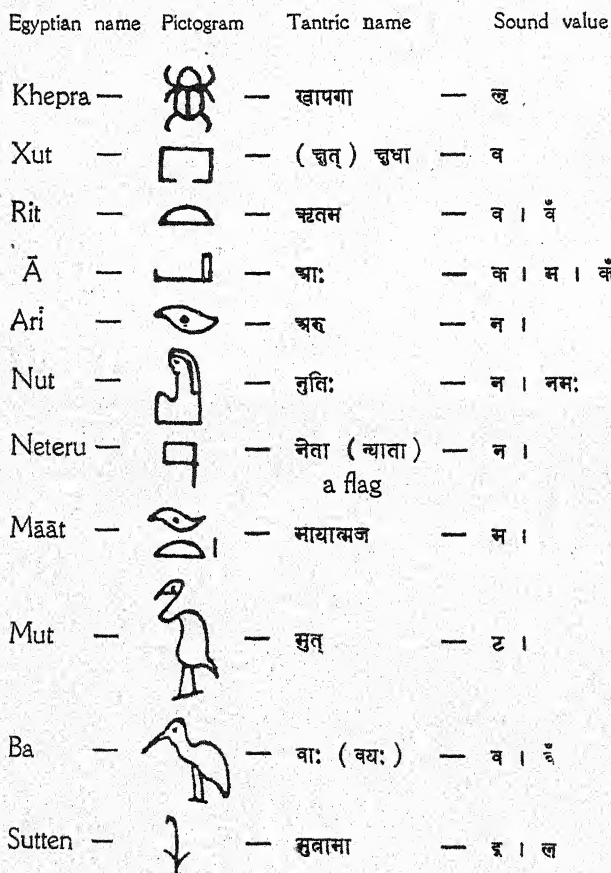 Egyptian name Pictogram Tantric name Sound value
Khepra — — खापगा —
Xut — — ( च्नुत् ) च्नुधा — व
Rit — — ऋतम — व । वँ
Ā — — आः — क । म । कँ
Ari — — अरु — न ।
Nut — — नुतिः — न । नमः
Neteru — — नेता ( न्याता ) — न ।
a flag
Māāt — — मायात्मज — म ।
Mut — — मुत् — ट ।
Ba — — वाः ( वयः ) — व ।
Sutten — — सुवामा — द्र । ल